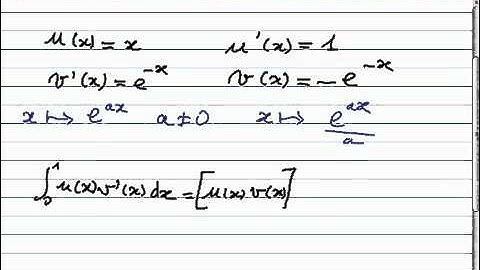 u(x) = x u'(x) = 1
v'(x) = e^{-x} v(x) = -e^{-x}
x ↦ e^{ax} a ≠ 0 x ↦ e^{ax}/a
∫_0^1 u(x) v'(x) dx = [u(x) v(x)]